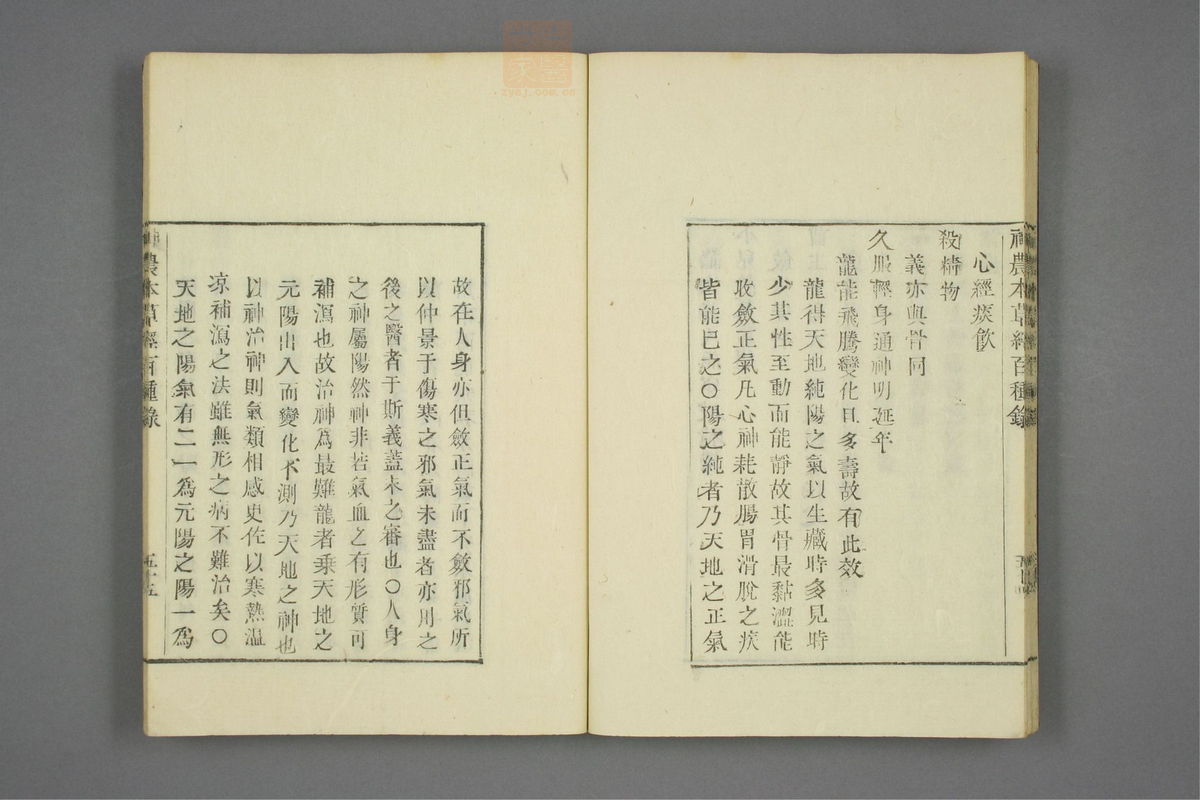 神農本草經百種錄
五十四
心經痰飲
殺精物
義亦與骨同
久服輕身通神明延年
龍能飛騰變化且多壽故有此效
龍得天地純陽之氣以生藏時多見時
少其性至動而能靜故其骨最黏澀能
收斂正氣凡心神耗散腸胃滑脫之疾
皆能已之○陽之純者乃天地之正氣
故在人身亦但斂正氣而不斂邪氣所
以仲景于傷寒之邪氣未盡者亦用之
後之醫者于斯義蓋未之審也○人身
之神屬陽然神非若氣血之有形質可
補瀉也故治神爲最難龍者乘天地之
元陽出入而變化不測乃天地之神也
以神治神則氣類相感更佐以寒熱溫
凉補瀉之法雖無形之病不難治矣○
天地之陽氣有二一爲元陽之陽一爲
神農本草經百種錄
五十五
zycj.com.cn